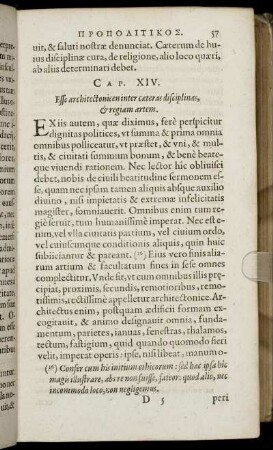 ΠΡΟΠΟΛΙΤΙΚΟΣ. 57
uit, & saluti nostræ denunciat. Cæterum de hu
ius disciplinæ cura, de religione, alio loco quæri,
ab aliis determinati debet.
CAP. XIV.
Esse architectonicen inter cæteras disciplinas,
& regiam artem.
EX iis autem, quæ diximus, ferè perspicitur
dignitas politices, vt summa & prima omnia
omnibus polliceatur, vt præstet, & vni, & mul-
tis, & ciuitati summum bonum, & benè beatè-
que viuendi rationem. Nec lector hîc obliuisci
debet, nobis de ciuili beatitudine sermonem es-
se, quam nec ipsam tamen aliquis absque auxilio
diuino, nisi impietatis & extremæ infelicitatis
magister, somniauerit. Omnibus enim tum re-
giè seruit, tum humanissimè imperat. Nec est e-
nim, vel vlla ciuitatis partium, vel ciuium ordo,
vel cuiuscunque conditionis aliquis, quin huic
subiiciantur & pareant. Eius vero finis alia-
rum artium & facultatum fines in sese omnes
complectitur. Vnde sit, vt cum omnibus illis præ-
cipiat, proximis, secundis, remotioribus, remo-
tissimis, rectissimè appelletur architectonice. Ar-
chitectus enim, postquam ædificii formam ex-
cogitauit, & animo designauit omnia, funda-
mentum, parietes, ianuas, fenestras, thalamos,
tectum, fastigium, quid quando quomodo fieri
velit, imperat operis: ipse, nisi libeat, manum o-
Confer cum his initium ethicorum: sed hæc ipsa hîc
magis illustrare, ab re non fuisse, fateor: quod alio, nec
incommodo loco, non negligemus.
D 5 peri